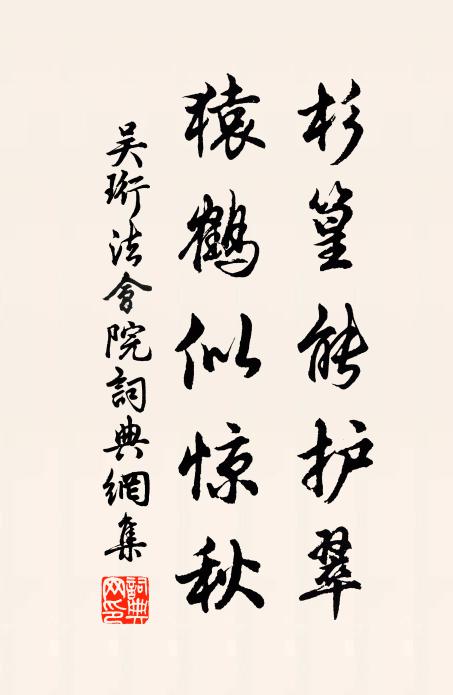 杉篁能护翠
猿鹤似惊秋
吴珩法會院詞典網集
詞典网印